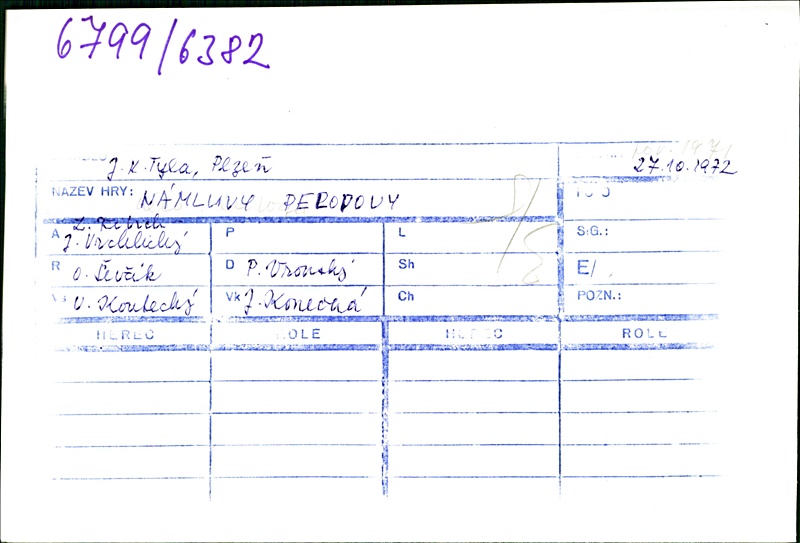 6799/6382
J. K. Tyla, Plzeň
27.10.1972
NÁZEV HRY: NÁMLUVY PELOPOVY
A Z. Fibich P L S:G.:
J. Vrchlický
R O. Ševčík D P. Vronský Sh E/ .
Vs V. Koubecký Vk J. Konečná Ch POZN.:
HEREC ROLE HEREC ROLE